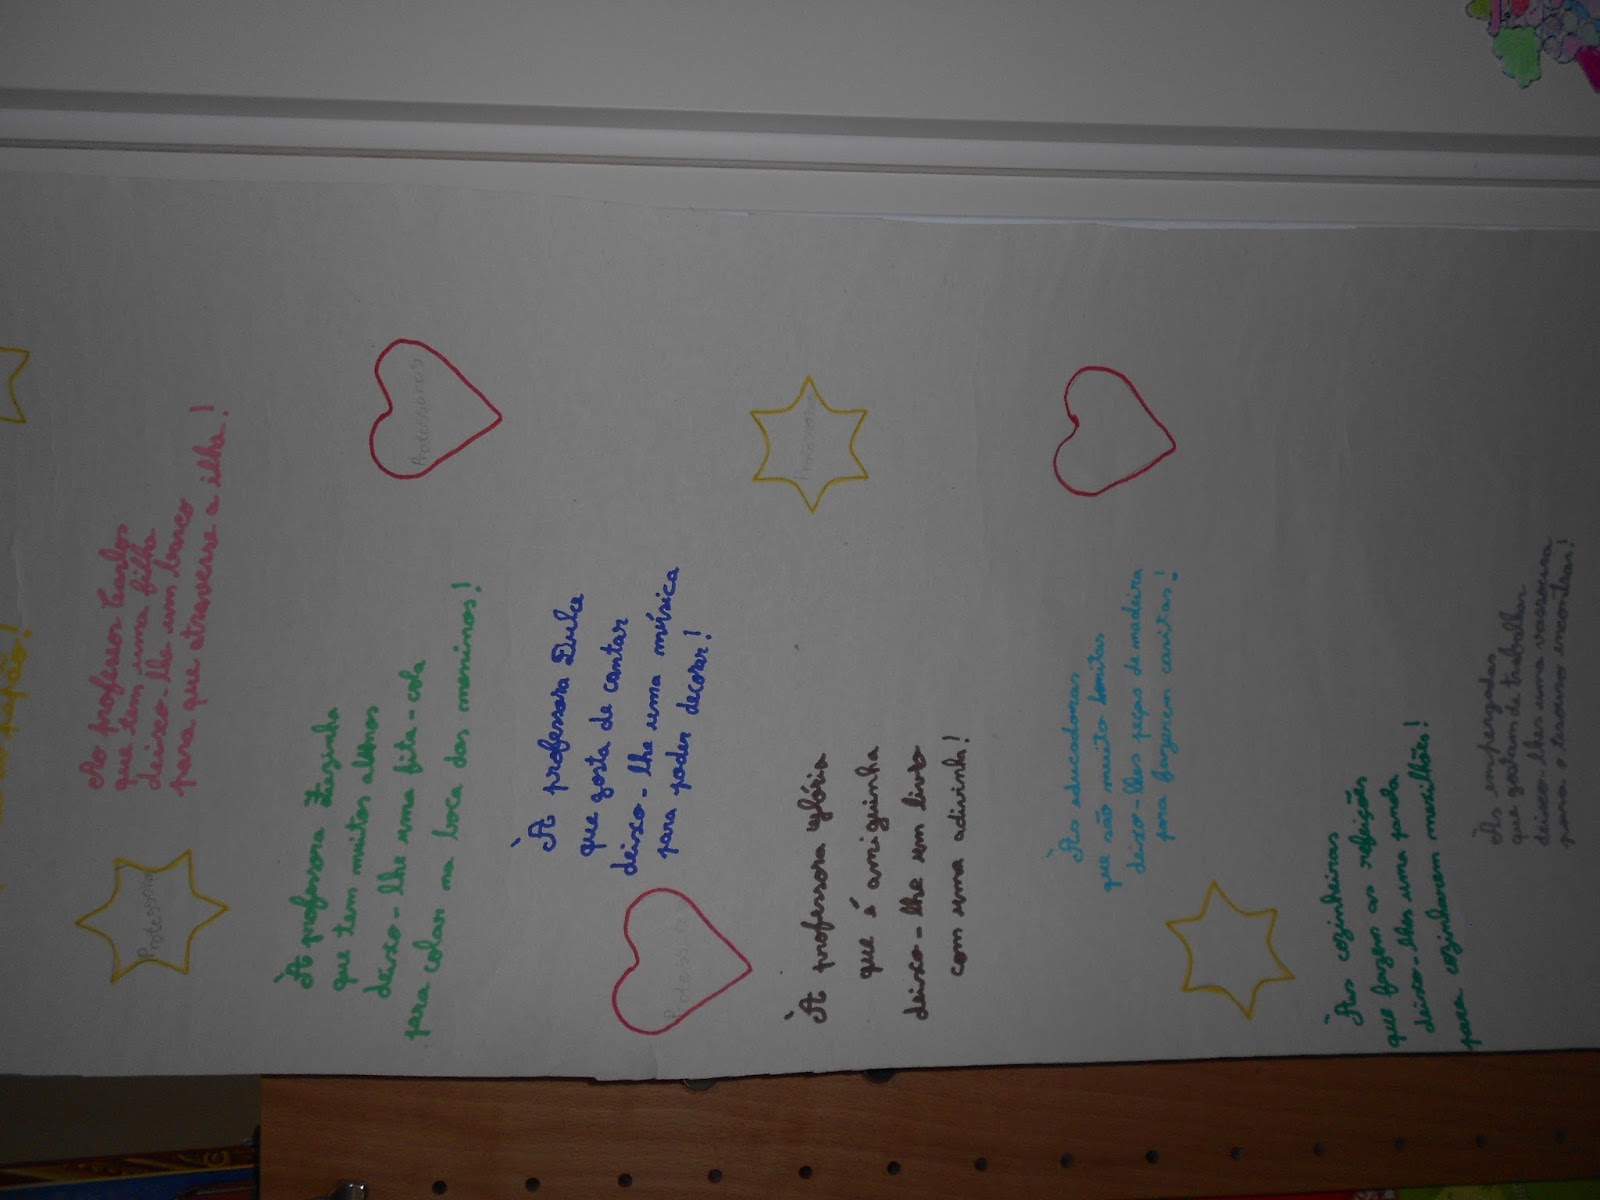 papão!
Ao professor Carlos
que tem uma filha
deixo-lhe um barco
para que atravesse a ilha!
Professor
À professora Zezinha
que tem muitos alunos
deixo-lhe uma fita-cola
para colar na boca dos meninos!
Professores
À professora Dulce
que gosta de cantar
deixo-lhe uma música
para poder decorar!
À professora Glória
que é amiguinha
deixo-lhe um livro
com uma adivinha!
Às educadoras
que são muito bonitas
deixo-lhes peças de madeira
para fazerem casitas!
Às cozinheiras
que fazem as refeições
deixo-lhes uma panela
para cozinharem mexilhões!
Às empregadas
que gostam de trabalhar
deixo-lhes uma vassoura
para o tesouro encontrar!